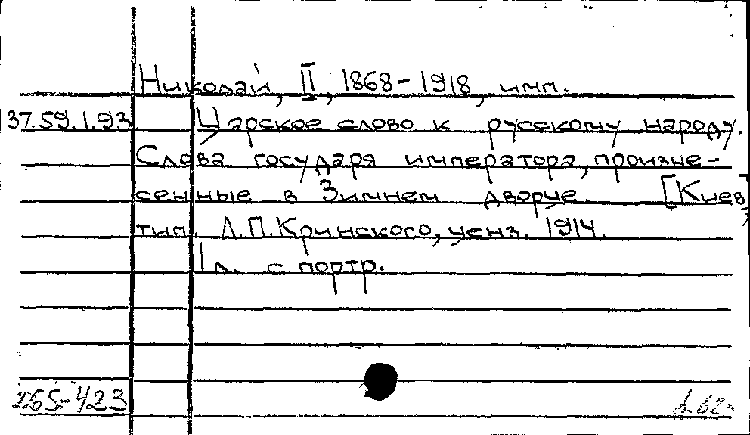 Николай, II, 1868-1918, имп.
37.59.1.93 Царское слово к русскому народу.
Слова государя императора, произне-
сенные в Зимнем дворце [Киев,
тип. Л.П. Кринского, ценз. 1914.
1 л. с портр.
265-423